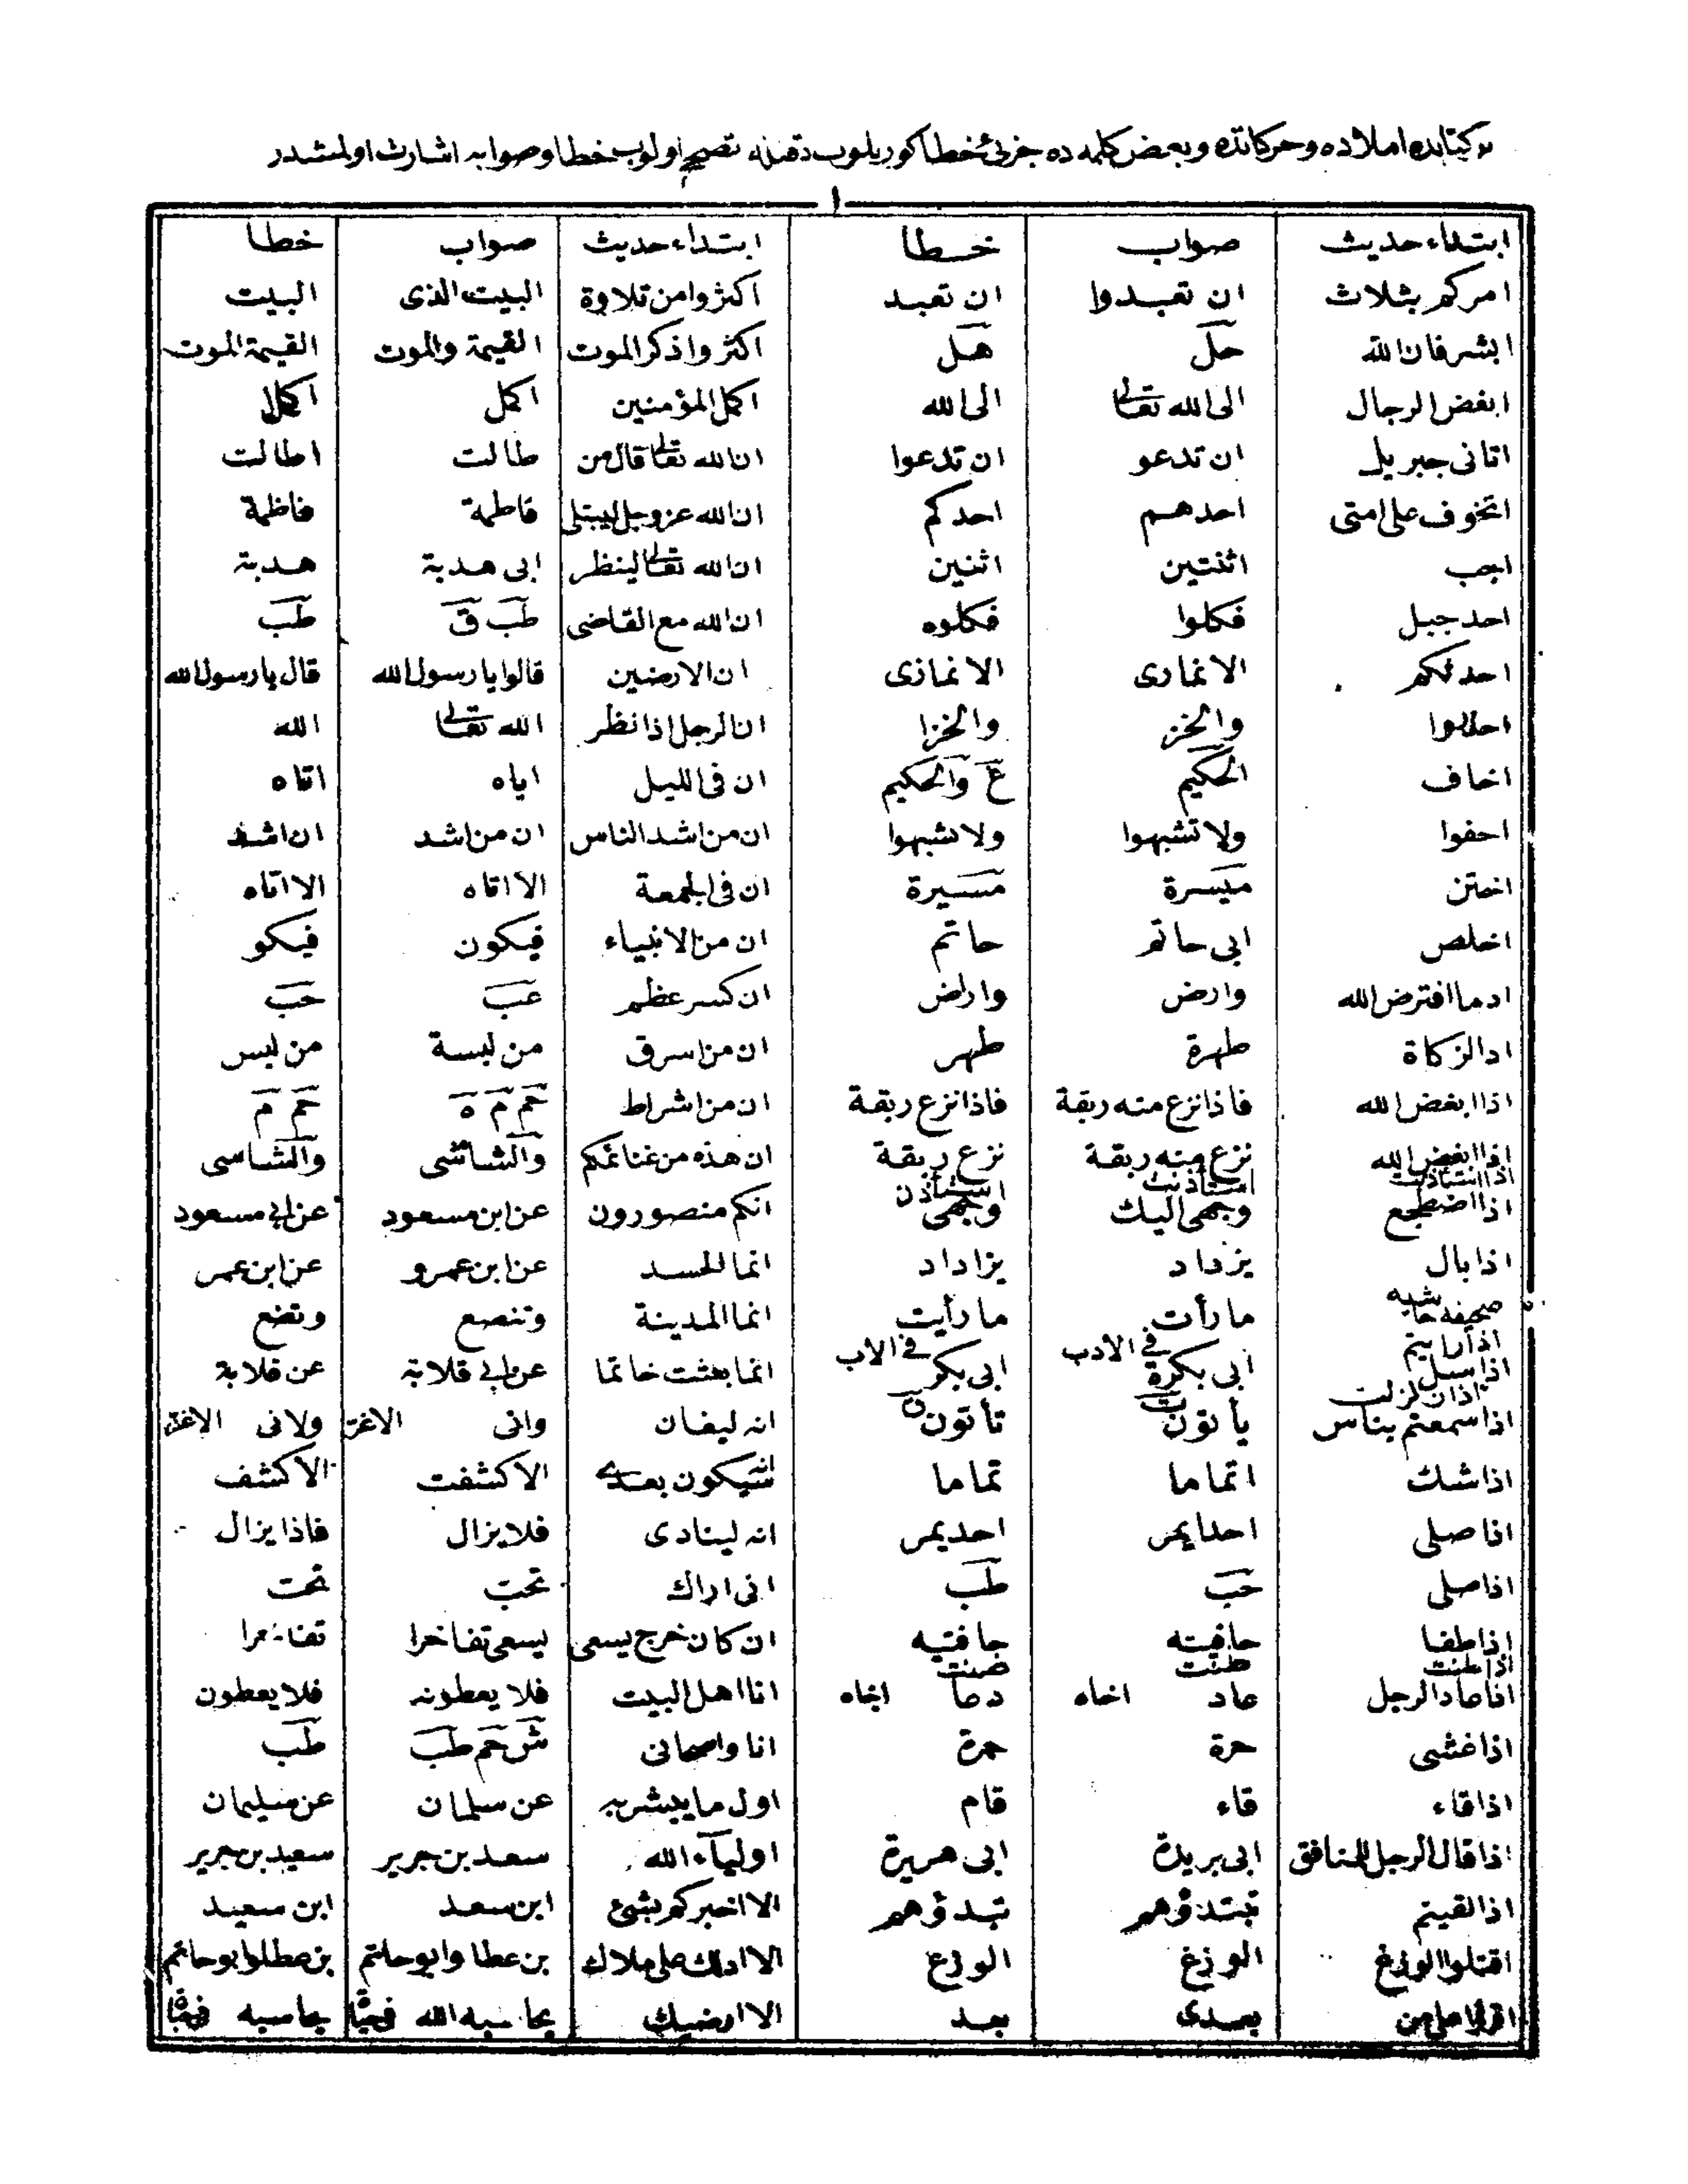 بو كتابده املاده و حركاتده و بعض كلمه ده جزئى خطا كوريلوب دقتله تصحيح اولنوب خطا و صوابه اشارت اولنمشدر
١
ابتداء حديث صواب خطا ابتداء حديث صواب خطا
امركم بثلاث ان تعبدوا ان تعبد اكثروا من تلاوة البيت الذى البيت
ابشر فان الله حل هل اكثروا ذكر الموت القيمة والموت القيمة الموت
ابغض الرجال الى الله تعالى الى الله اكمل المؤمنين اكمل اكملا
اتانى جبريل ان تدعو ان تدعوا ان الله تعالى قال من طالت اطالت
اتخوف على امتى احدهم احدكم ان الله عز وجل ليبتلى فاطمة فاظمة
اجب اثنتين اثنين ان الله تعالى لينظر ابى هدبة هدبة
احد جبل فكلوا فكلوه ان الله مع القاضى طب ق طب
احدثكم الانمارى الانمازى ان الارضين قالوا يا رسول الله قال يا رسول الله
والخز والخزا ان الرجل اذا نظر الله تعالى الله
اخاف الحكيم ع والحكيم ان فى الليل اياه اتاه
احفوا ولا تشبهوا ولا شبهوا ان من اشد الناس ان من اشد ان اشد
اختتن ميسرة مسيرة ان فى الجمعة الا اتاه الا اتاه
اخلص ابى حاتم حاتم ان من الانبياء فيكون فيكو
اد ما افترض الله وارض واراض ان كسر عظم عب حب
اد الزكاة طهرة طهر ان من اسرق من لبسة من لبس
اذا ابغض الله فاذا نزع منه ربقة فاذا نزع ربقة ان من اشراط حم م ه حم م
اذا ابغض الله نزع منه ربقة نزع ربقة ان هذه من غنائمكم والشاشى والشاسى
اذا استأذنت استأذنت استأذن
اذا اضطجع وجهى اليك وجهى انكم منصورون عن ابن مسعود عن ابى مسعود
اذا بال يزداد يزاداد انما الحسد عن ابن عمرو عن ابن عمر
صحيفه حاشيه
اذا رايتم ما رأت ما رأيت انما المدينة وتنصع وتضع
فى الادب فى الاب
ابى بكرة ابى بكر انما بعثت خاتما عن ابى قلابة عن قلابة
اذا سمعتم بناس يأتون تأتون انه ليغان وانى الاغر ولانى الاغر
اذا شك اتماما تماما انه سيكون بعدى الا كشفت الا كشف
اذا صلى احدا يمر احد يمر انه لينادى فلا يزال فاذا يزال
اذا صلى حب طب انى اراك تحب تحت
اذا طفا حافيته جافتيه ان كان خرج يسعى يسعى تفاخرا
اذا طنت طنت صنت
اذا عاد الرجل عاد اخاه دعا اخاه انا اهل البيت فلا يعطونه فلا يعطون
اذا غشى حرة حمرة انا واصحابى ش حم طب طب
اذا قاء قاء قام اول ما يبشر به عن سلمان عن سليمان
اذا قال الرجل للمنافق ابى بريدة ابى هريرة اولياء الله سعد بن جرير سعيد بن جرير
اذا لقيتم تبتدؤهم تبدؤهم الا اخبركم بشئ ابن سعد ابن سعيد
اقتلوا الوزغ الوزغ الوزع الا ادلك على ملاك بن عطا وابو حاتم بن عطا وابو حاتم
اقرؤا على من بعدى بعد الا ارضيك يحاسبه الله يحاسبه